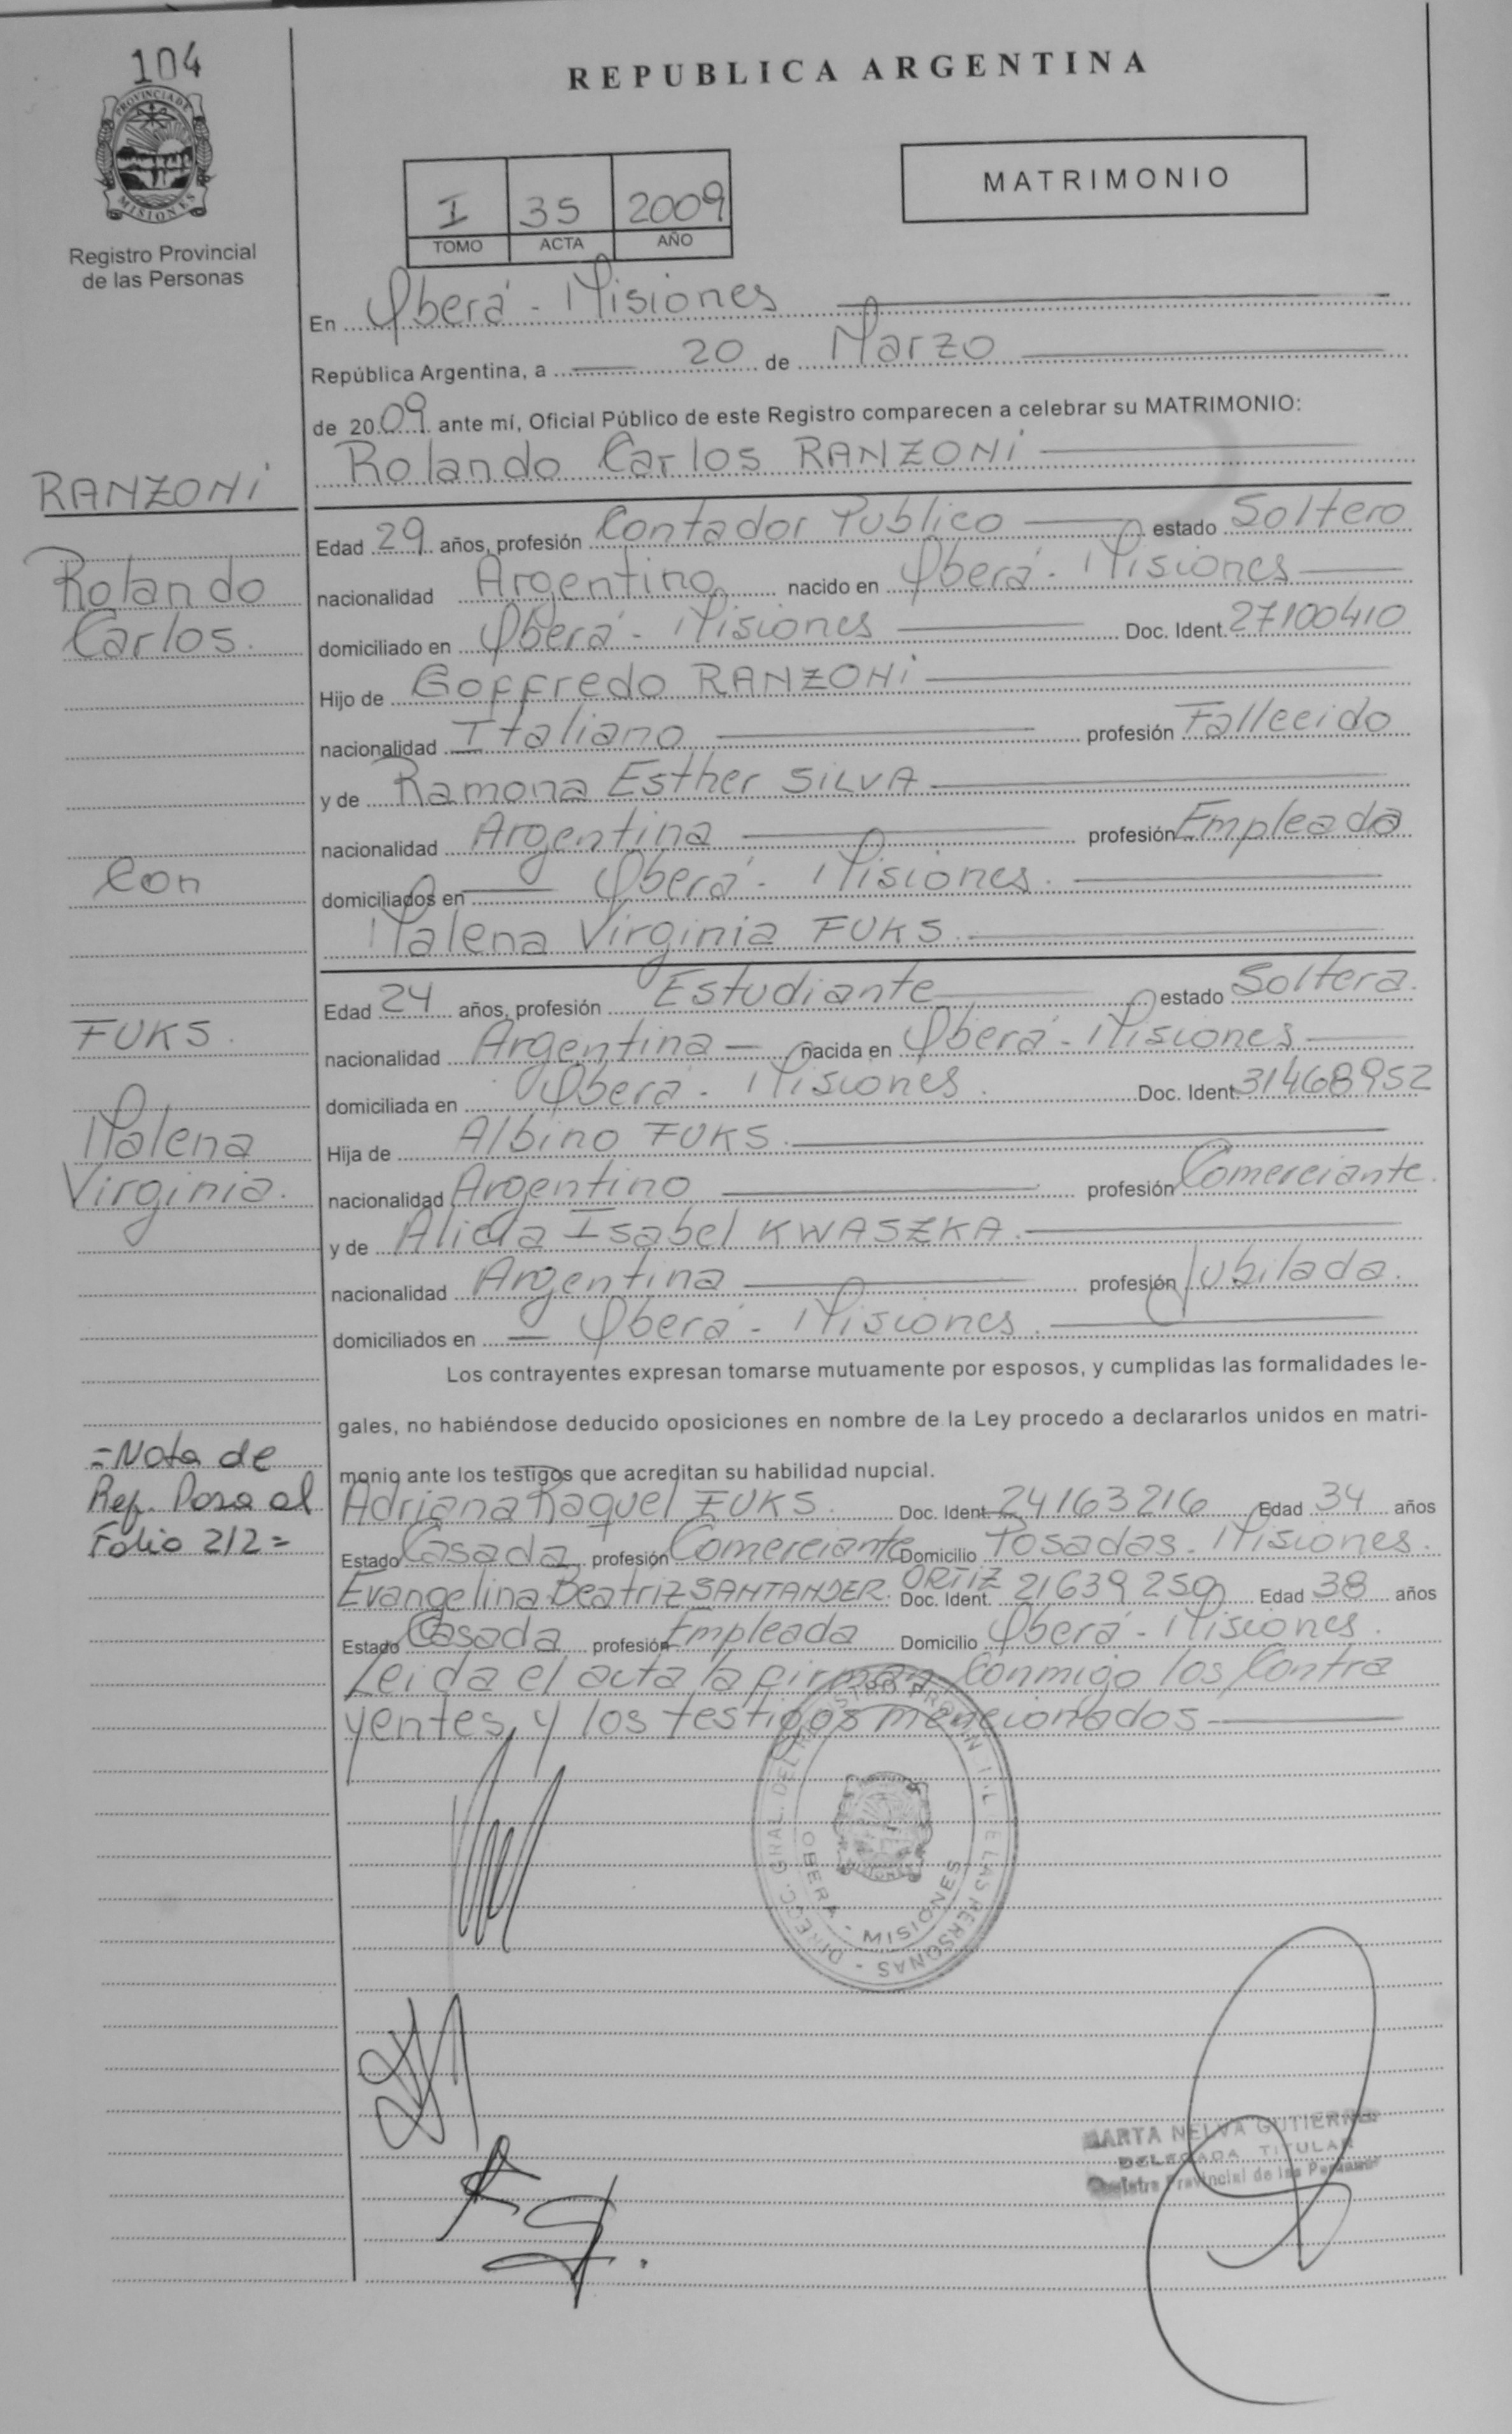 104
PROVINCIA DE
MISIONES
Registro Provincial
de las Personas
REPUBLICA ARGENTINA
I 35 2009
TOMO ACTA AÑO
MATRIMONIO
En Oberá - Misiones
República Argentina, a 20 de Marzo
de 2009 ante mí, Oficial Público de este Registro comparecen a celebrar su MATRIMONIO:
Rolando Carlos RANZONI
RANZONI
Edad 29 años, profesión Contador Publico estado Soltero
Rolando
nacionalidad Argentino nacido en Oberá - Misiones
Carlos.
domiciliado en Oberá - Misiones Doc. Ident. 27100410
Hijo de Goffredo RANZONI
nacionalidad Italiano profesión Fallecido
y de Ramona Esther SILVA
nacionalidad Argentina profesión Empleada
Con
domiciliados en Oberá - Misiones.
Malena Virginia FUKS.
Edad 24 años, profesión Estudiante estado Soltera.
FUKS.
nacionalidad Argentina nacida en Oberá - Misiones
domiciliada en Oberá - Misiones. Doc. Ident. 31468952
Malena
Hija de Albino FUKS.
Virginia.
nacionalidad Argentino profesión Comerciante.
y de Alicia Isabel KWASZKA.
nacionalidad Argentina profesión Jubilada.
domiciliados en Oberá - Misiones.
Los contrayentes expresan tomarse mutuamente por esposos, y cumplidas las formalidades le-
gales, no habiéndose deducido oposiciones en nombre de la Ley procedo a declararlos unidos en matri-
monio ante los testigos que acreditan su habilidad nupcial.
=Nota de
Ref. Pasa al
Folio 212=
Adriana Raquel FUKS. Doc. Ident. 24163216 Edad 34 años
Estado Casada profesión Comerciante Domicilio Posadas - Misiones.
Evangelina Beatriz SANTANDER ORTIZ Doc. Ident. 21639250 Edad 38 años
Estado Casada profesión Empleada Domicilio Oberá - Misiones.
Leida el acta la firman Conmigo los Contra
yentes, y los testigos mencionados
DIRECC. GRAL. DEL REGISTRO PROVINCIAL DE LAS PERSONAS
OBERA - MISIONES
MARTA NELVA GUTIERREZ
DELEGADA TITULAR
Registro Provincial de las Personas